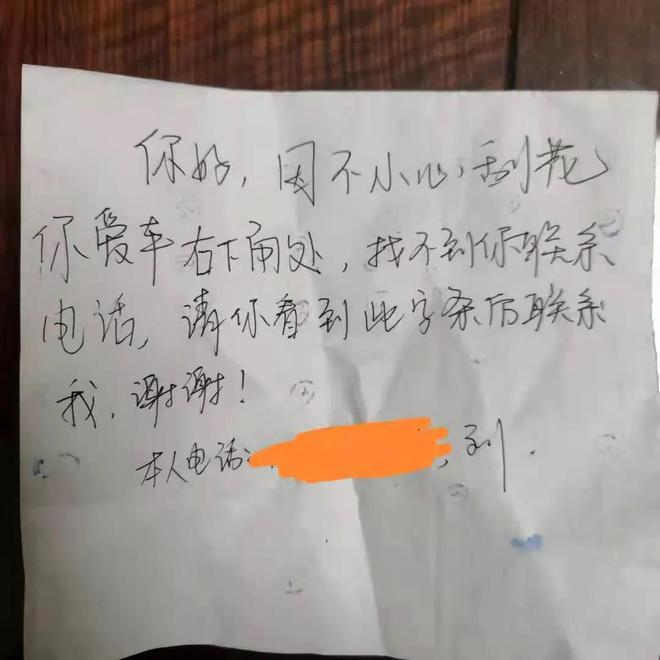 你好，因不小心，刮花
你爱车右下角处，找不到你联系
电话，请你看到此字条后联系
我，谢谢！
本人电话：